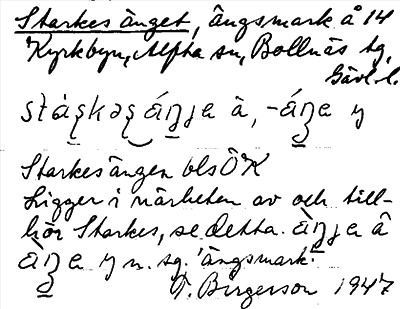 Starkes änget, ängsmark å 14
Kyrkbyn, Alfta sn, Bollnäs tg,
Gävl. l.
Starkesängen bls ÖK
Ligger i närheten av och till-
hör Starkes, se detta.
n. sg. 'ängsmark'.
T. Birgerson 1947